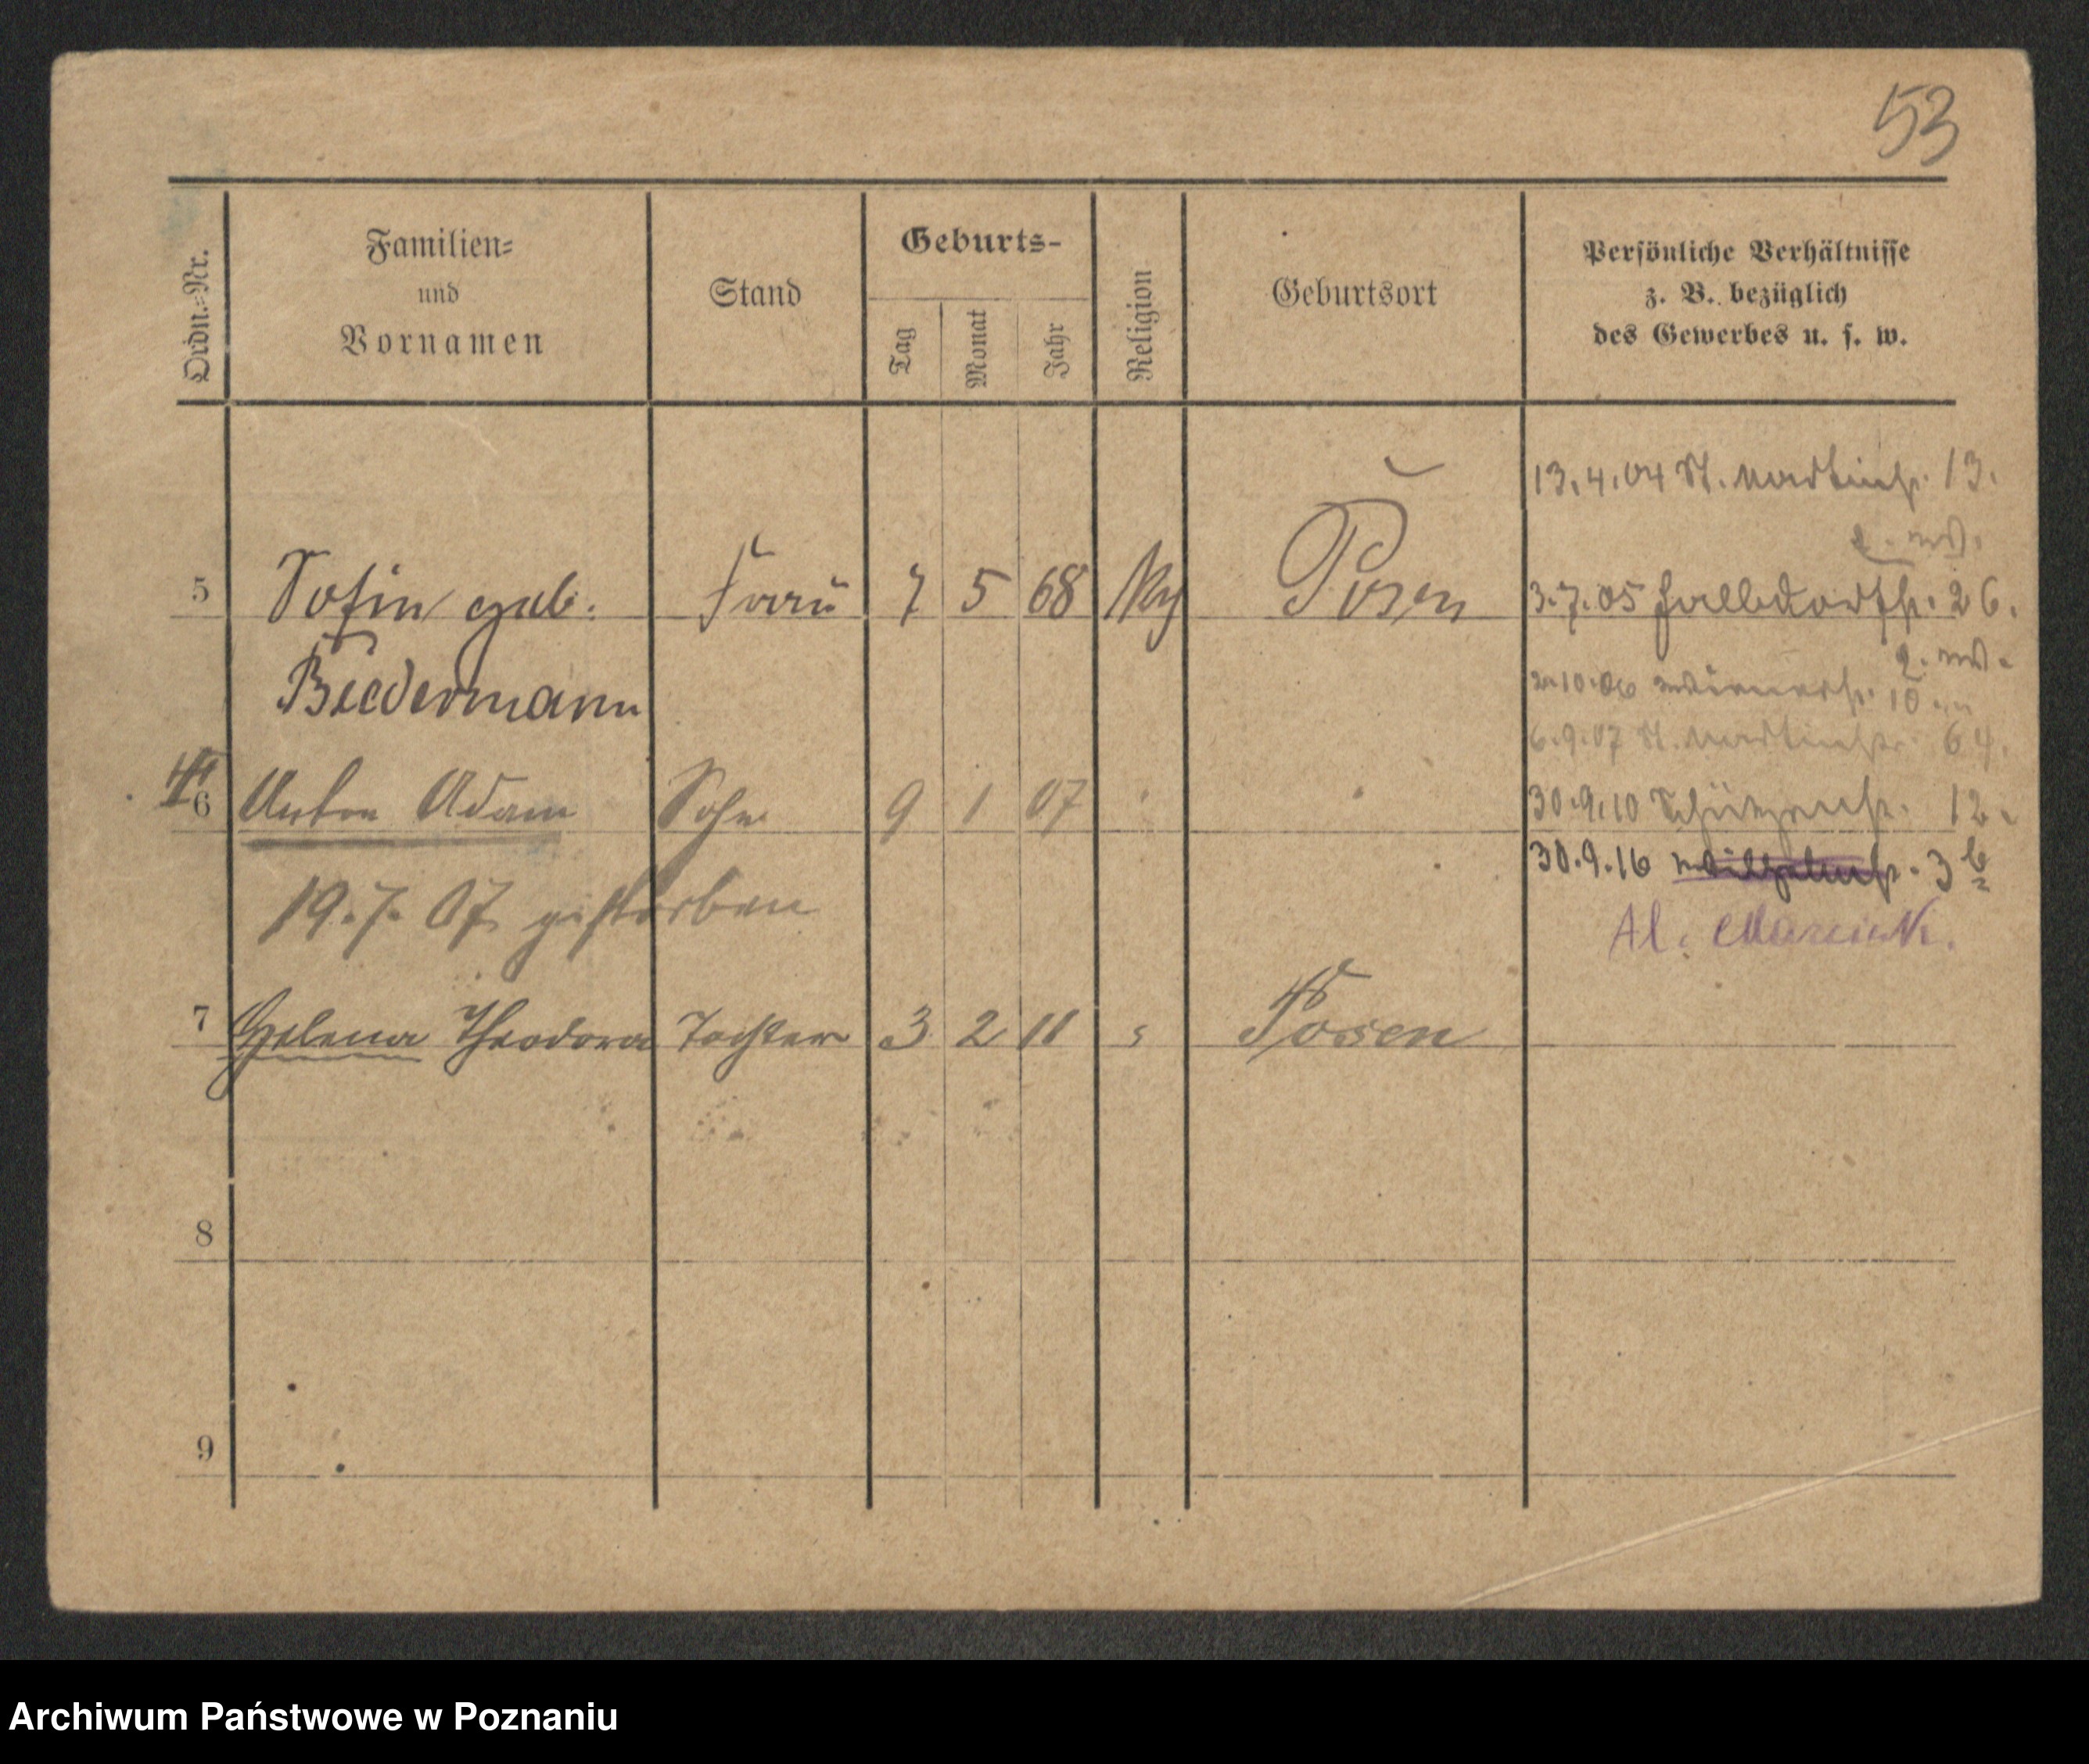 53
Ordn.=Nr.
Familien=
und
Vornamen
Stand
Geburts-
Tag
Monat
Jahr
Religion
Geburtsort
Persönliche Verhältnisse
z. B. bezüglich
des Gewerbes u. s. w.
13.4.04 St. Martinstr. 13.
5 Sofie geb. Frau 7 5 68 Posen 3.7.05 Halbdorfstr. 26.
Biedermann
2.10.06 10
6.9.07 St. Martinstr. 64.
6 Anton Adam Sohn 9 1 07 30.9.10 Schützenstr. 12.
30.9.16 Wilhelmstr. 3
19.7.07 gestorben
Al. Marcink.
7 Helena Theodora Tochter 3 2 11 Posen
8
9
Archiwum Państwowe w Poznaniu